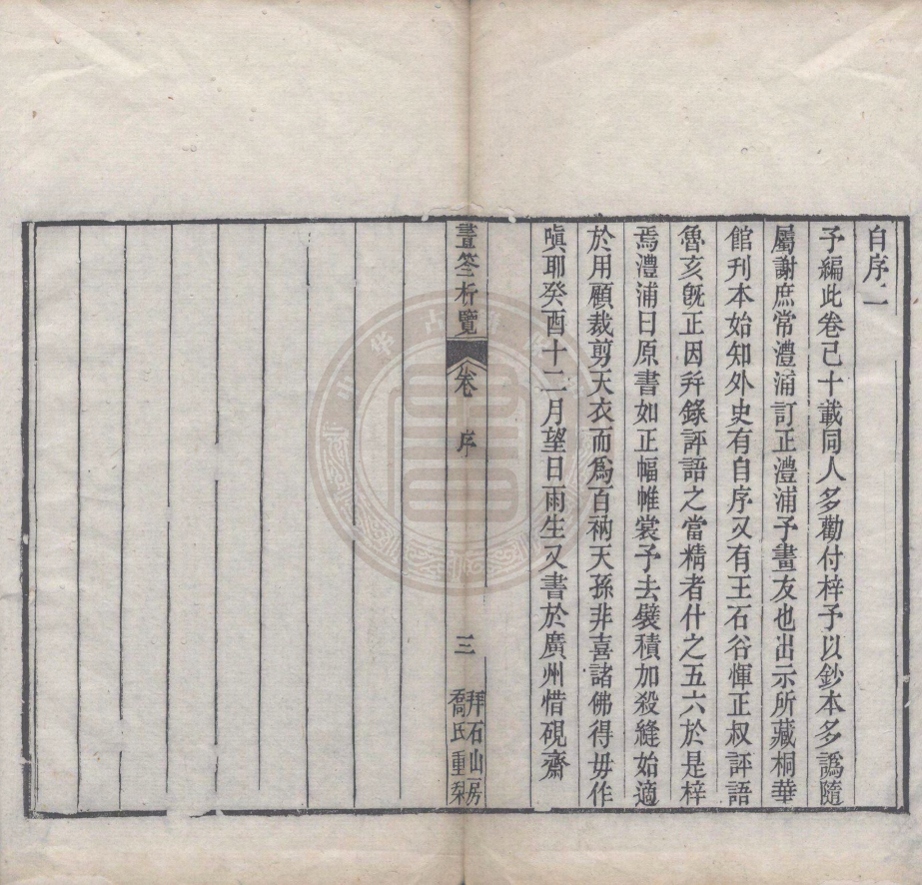 自序二
予編此卷已十載同人多勸付梓予以鈔本多譌隨
屬謝庶常澧浦訂正澧浦予畫友也出示所藏桐華
館刊本始知外史有自序又有王石谷惲正叔評語
魯亥旣正因并錄評語之當精者什之五六於是梓
焉澧浦曰原書如正幅帷裳予去襞積加殺縫始適
於用顧裁剪天衣而爲百衲天孫非喜諸佛得毋作
嗔耶癸酉十二月望日雨生又書於廣州惜硯齋
畫筌析覽 卷 序 三
拜石山房
喬氏重梨